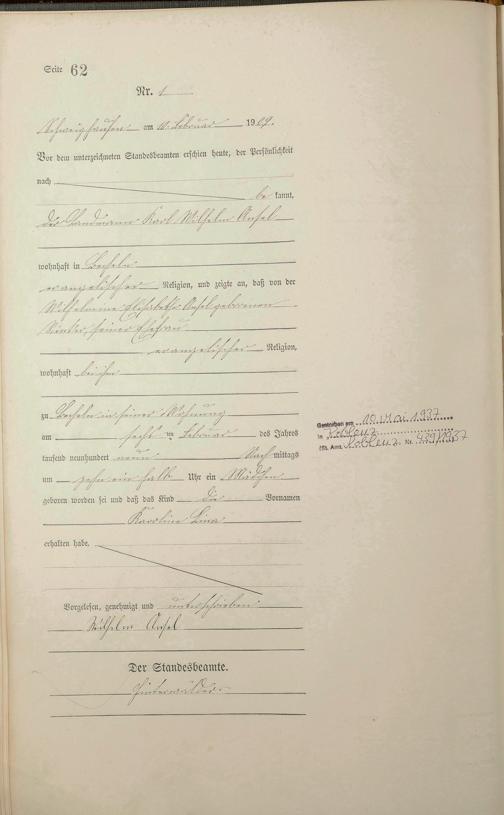 Seite 62
Nr. 1
Schweighausen am 10. Februar 1909.
Vor dem unterzeichneten Standesbeamten erschien heute, der Persönlichkeit
nach
be kannt,
der Landmann Karl Wilhelm Ansel
wohnhaft in Becheln
evangelischer Religion, und zeigte an, daß von der
Wilhelmine Elisabetha Ansel geborenen
seiner Ehefrau
evangelischer Religion,
wohnhaft bei ihm
zu Becheln in seiner Wohnung
am sechs ten Februar des Jahres
tausend neunhundert neun Nach mittags
um zehn ein halb Uhr ein Mädchen
geboren worden sei und daß das Kind die Vornamen
Karoline Lina
erhalten habe.
Vorgelesen, genehmigt und unterschrieben
Wilhelm Ansel
Der Standesbeamte.
Gestorben am 10. Mai 1937
in Koblenz
Koblenz Nr. 429/1937